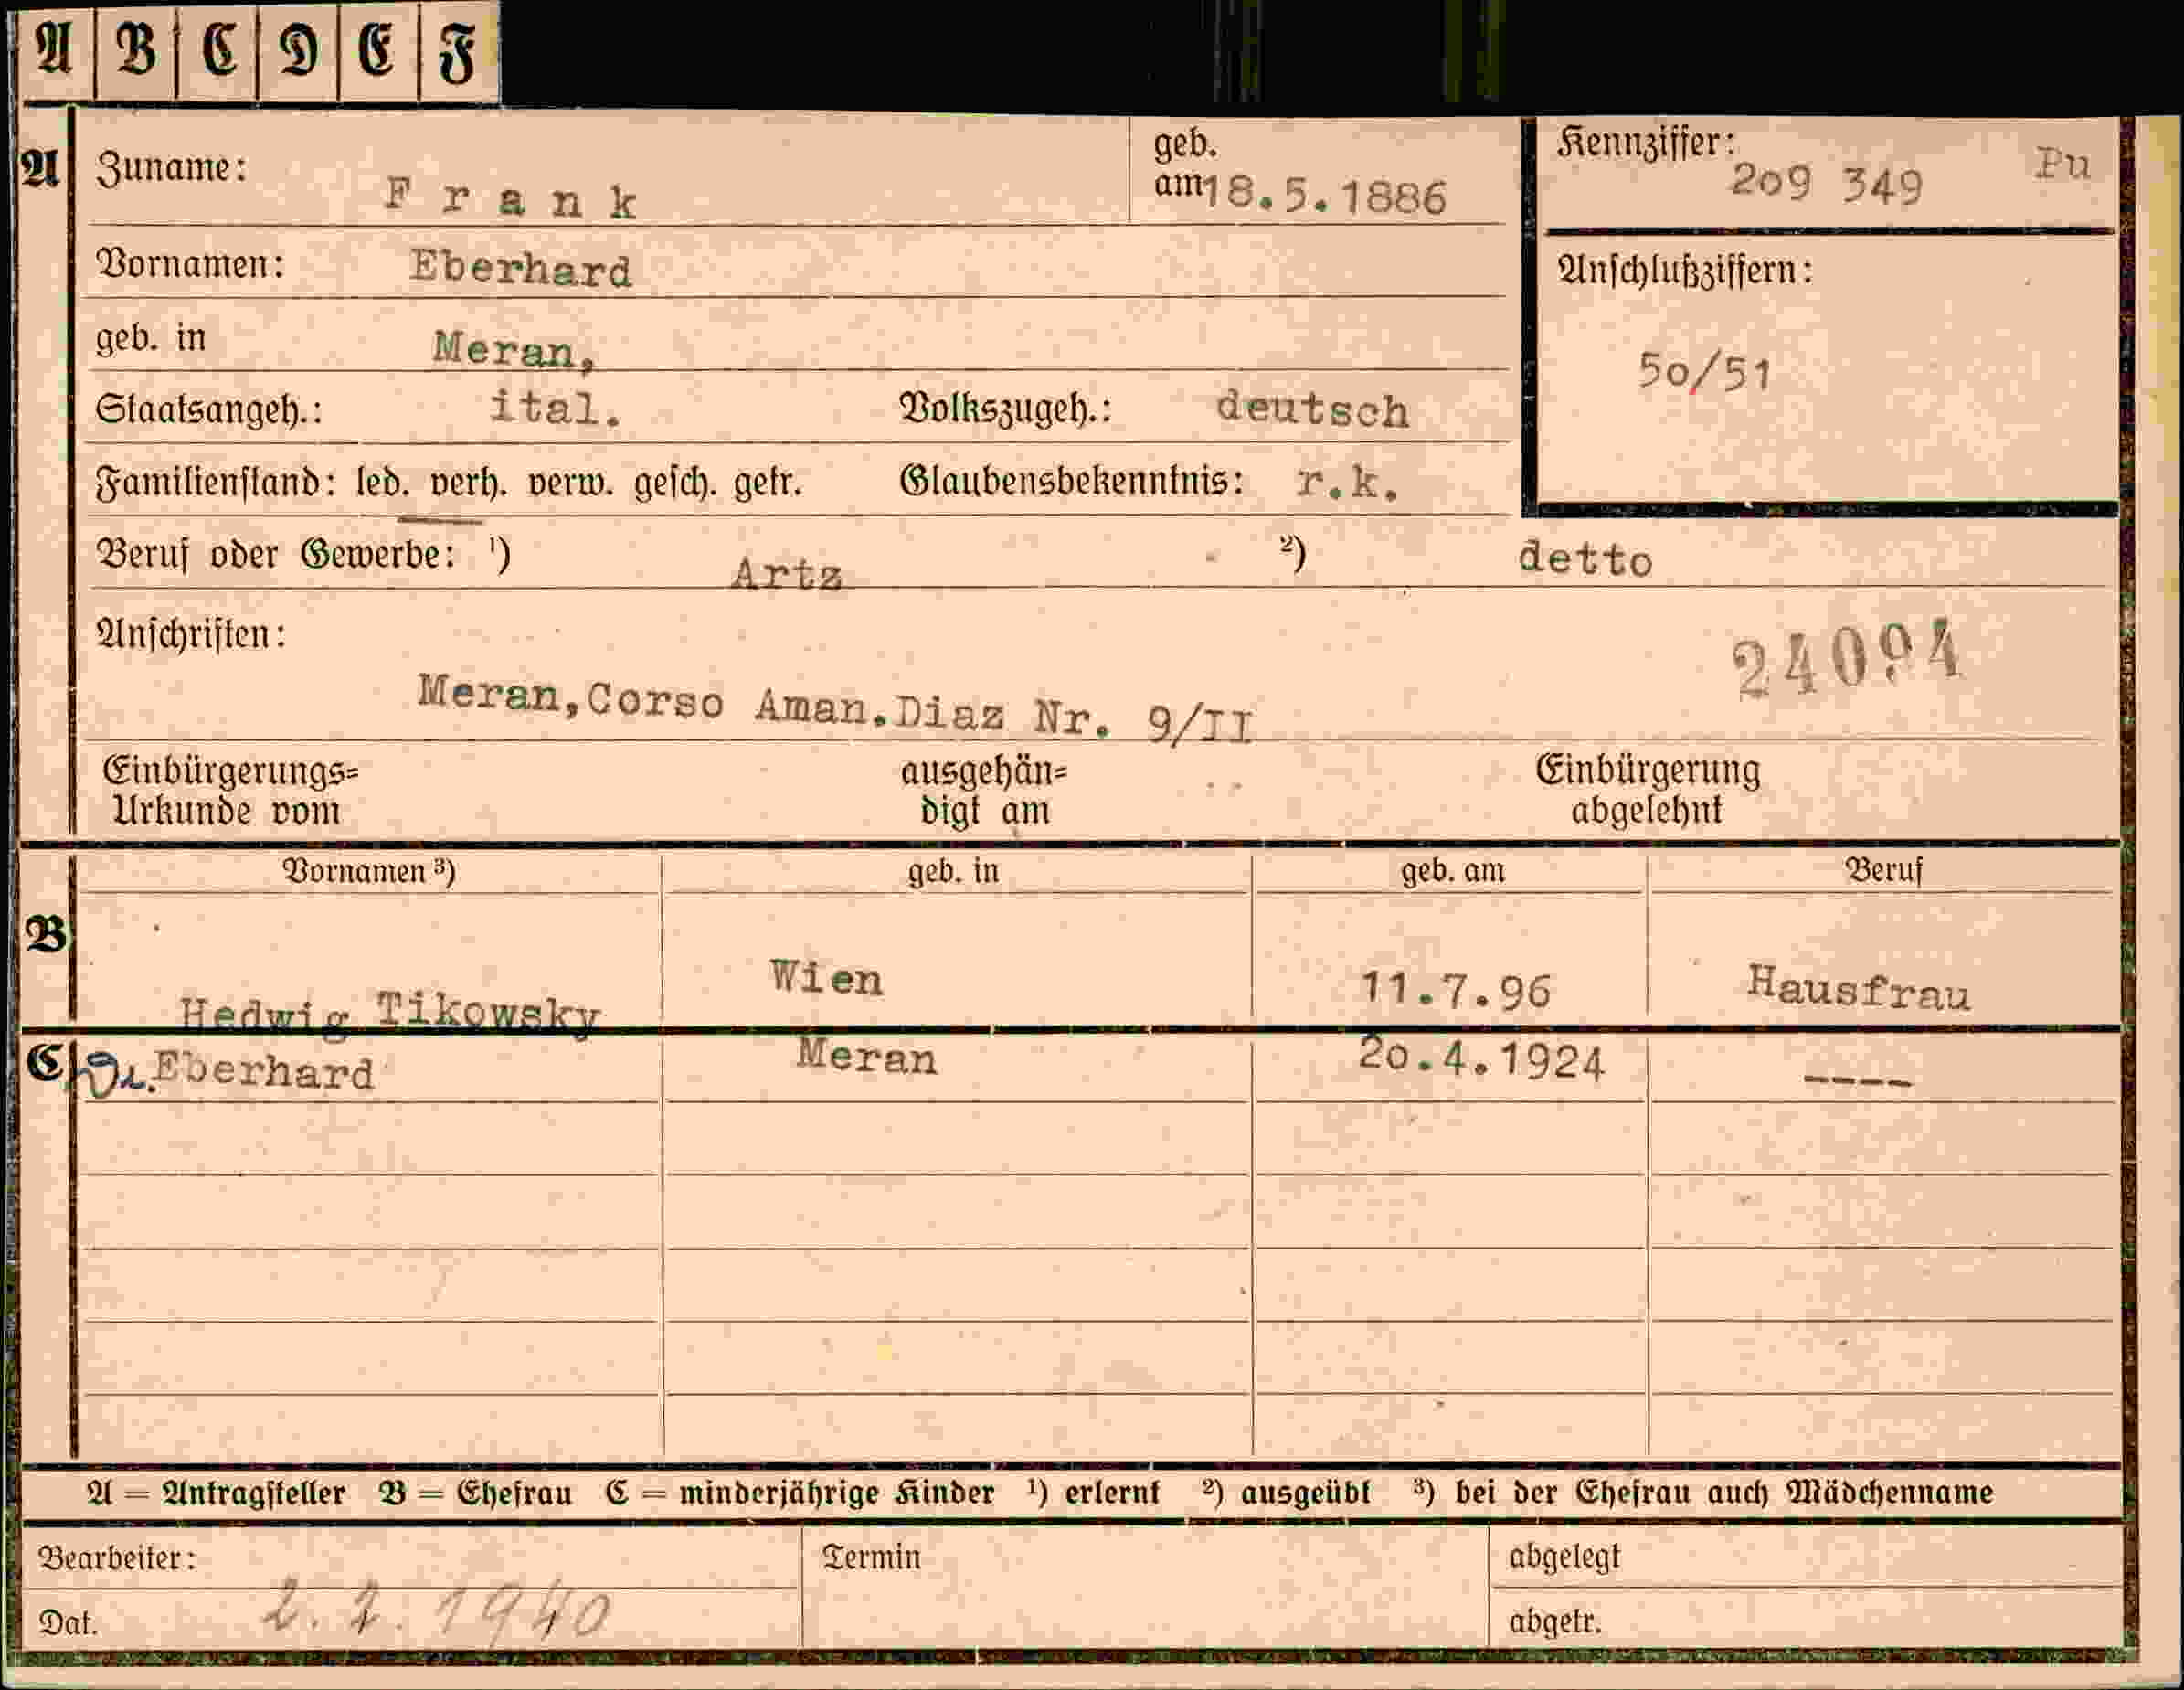 A B C D E F
A Zuname: Frank geb. am 18.5.1886 Kennziffer: 209 349 Pu
Vornamen: Eberhard Anschlußziffern:
geb. in Meran, 50/51
Staatsangeh.: ital. Volkszugeh.: deutsch
Familienstand: led. verh. verw. gesch. getr. Glaubensbekenntnis: r.k.
Beruf oder Gewerbe: ¹) Artz ²) detto
Anschriften: 24094
Meran,Corso Aman.Diaz Nr. 9/II
Einbürgerungs= ausgehän= Einbürgerung
Urkunde vom digt am abgelehnt
Vornamen ³) geb. in geb. am Beruf
B Hedwig Tikowsky Wien 11.7.96 Hausfrau
C Eberhard Meran 20.4.1924 ----
A = Antragsteller B = Ehefrau C = minderjährige Kinder ¹) erlernt ²) ausgeübt ³) bei der Ehefrau auch Mädchenname
Bearbeiter: Termin abgelegt
Dat. abgetr.